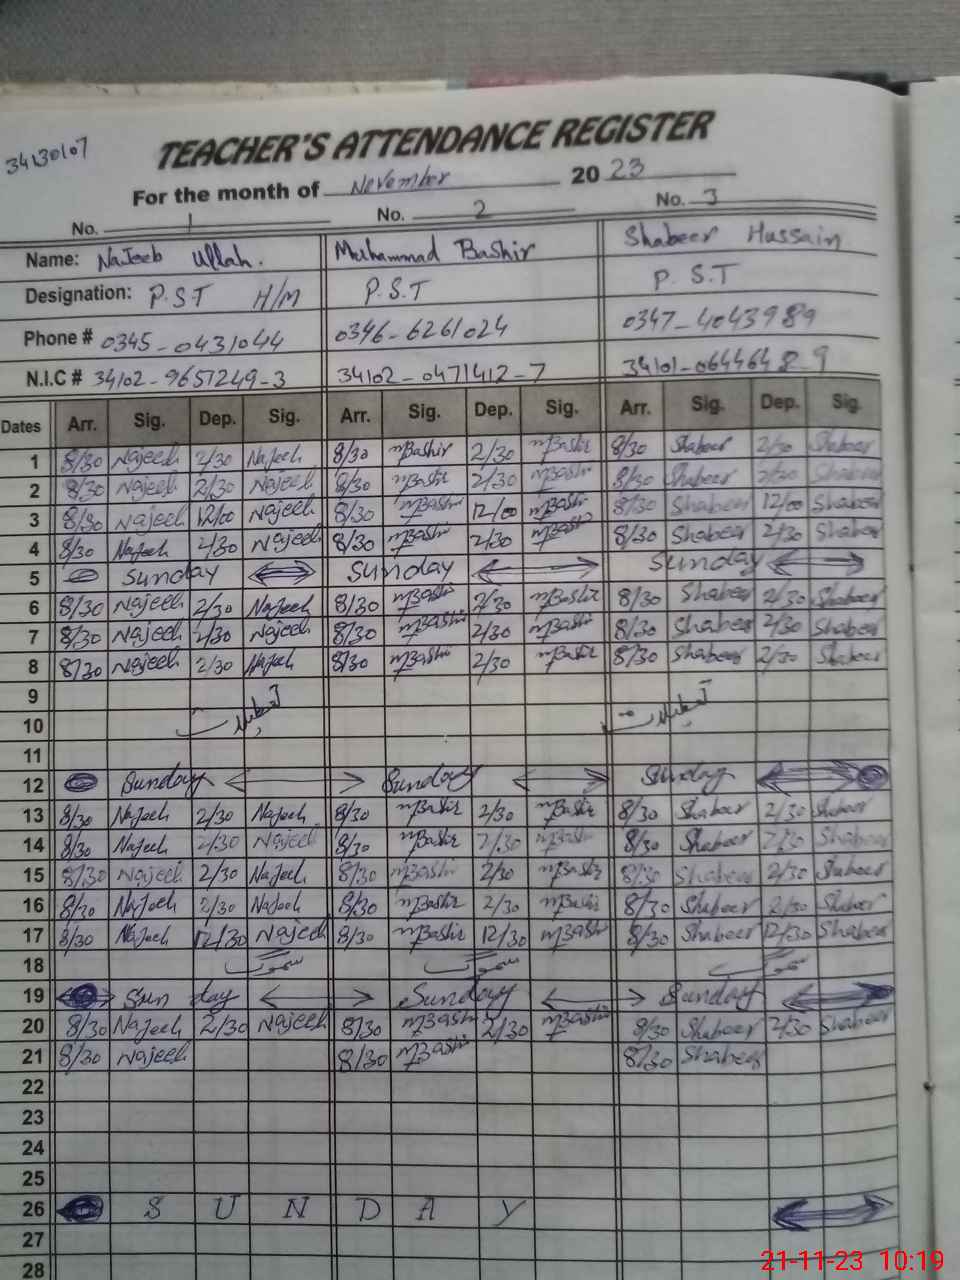 34130107
TEACHER'S ATTENDANCE REGISTER
For the month of November 2023
No. 1 No. 2 No. 3
Name: Najeeb Ullah. Muhammad Bashir Shabeer Hussain
Designation: P.S.T H/M P.S.T P.S.T
Phone # 0345-0431044 0346-6261024 0347-4043989
N.I.C # 34102-9657249-3 34102-0471412-7 34101-0644648-9
Dates Arr. Sig. Dep. Sig. Arr. Sig. Dep. Sig. Arr. Sig. Dep. Sig.
1 8/30 Najeeb 2/30 Najeeb 8/30 mBashir 2/30 mBashir 8/30 Shabeer 2/30 Shabeer
2 8/30 Najeeb 2/30 Najeeb 8/30 mBashir 2/30 mBashir 8/30 Shabeer 2/30 Shabeer
3 8/30 Najeeb 12/00 Najeeb 8/30 mBashir 12/00 mBashir 8/30 Shabeer 12/00 Shabeer
4 8/30 Najeeb 2/30 Najeeb 8/30 mBashir 2/30 mBashir 8/30 Shabeer 2/30 Shabeer
5 Sunday Sunday Sunday
6 8/30 Najeeb 2/30 Najeeb 8/30 mBashir 2/30 mBashir 8/30 Shabeer 2/30 Shabeer
7 8/30 Najeeb 2/30 Najeeb 8/30 mBashir 2/30 mBashir 8/30 Shabeer 2/30 Shabeer
8 8/30 Najeeb 2/30 Najeeb 8/30 mBashir 2/30 mBashir 8/30 Shabeer 2/30 Shabeer
9
10 تعطیلات تعطیلات
11
12 Sunday Sunday Sunday
13 8/30 Najeeb 2/30 Najeeb 8/30 mBashir 2/30 mBashir 8/30 Shabeer 2/30 Shabeer
14 8/30 Najeeb 2/30 Najeeb 8/30 mBashir 2/30 mBashir 8/30 Shabeer 2/30 Shabeer
15 8/30 Najeeb 2/30 Najeeb 8/30 mBashir 2/30 mBashir 8/30 Shabeer 2/30 Shabeer
16 8/30 Najeeb 2/30 Najeeb 8/30 mBashir 2/30 mBashir 8/30 Shabeer 2/30 Shabeer
17 8/30 Najeeb 12/30 Najeeb 8/30 mBashir 12/30 mBashir 8/30 Shabeer 12/30 Shabeer
18
19 Sunday Sunday Sunday
20 8/30 Najeeb 2/30 Najeeb 8/30 mBashir 2/30 mBashir 8/30 Shabeer 2/30 Shabeer
21 8/30 Najeeb 8/30 mBashir 8/30 Shabeer
22
23
24
25
26 S U N D A Y
27
28
21-11-23 10:19